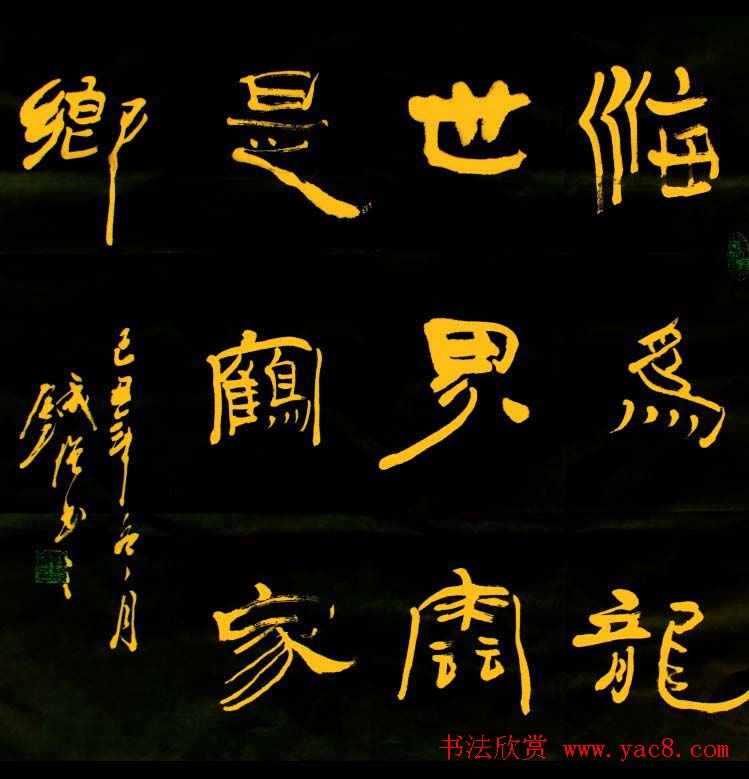 海爲龍
世界雲
是鶴家
鄉
己丑年冬月
书法欣赏 www.yac8.com